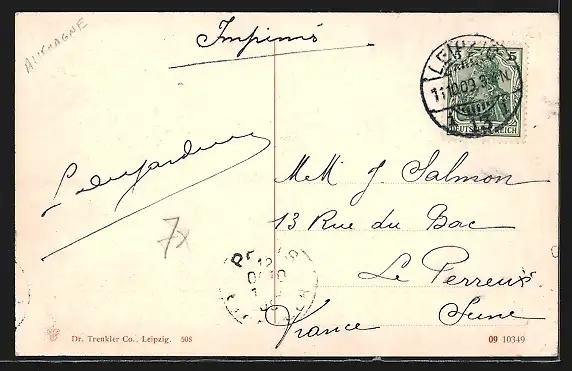 ALLEMAGNE
Imprimés
LEIPZIG
11.10.09. 9-10 N.
13
5
DEUTSCHES REICH
MeM J. Salmon
13 Rue du Bac
Le Perreux
Seine
France
7x
Dr. Trenkler Co., Leipzig. 508
09 10349